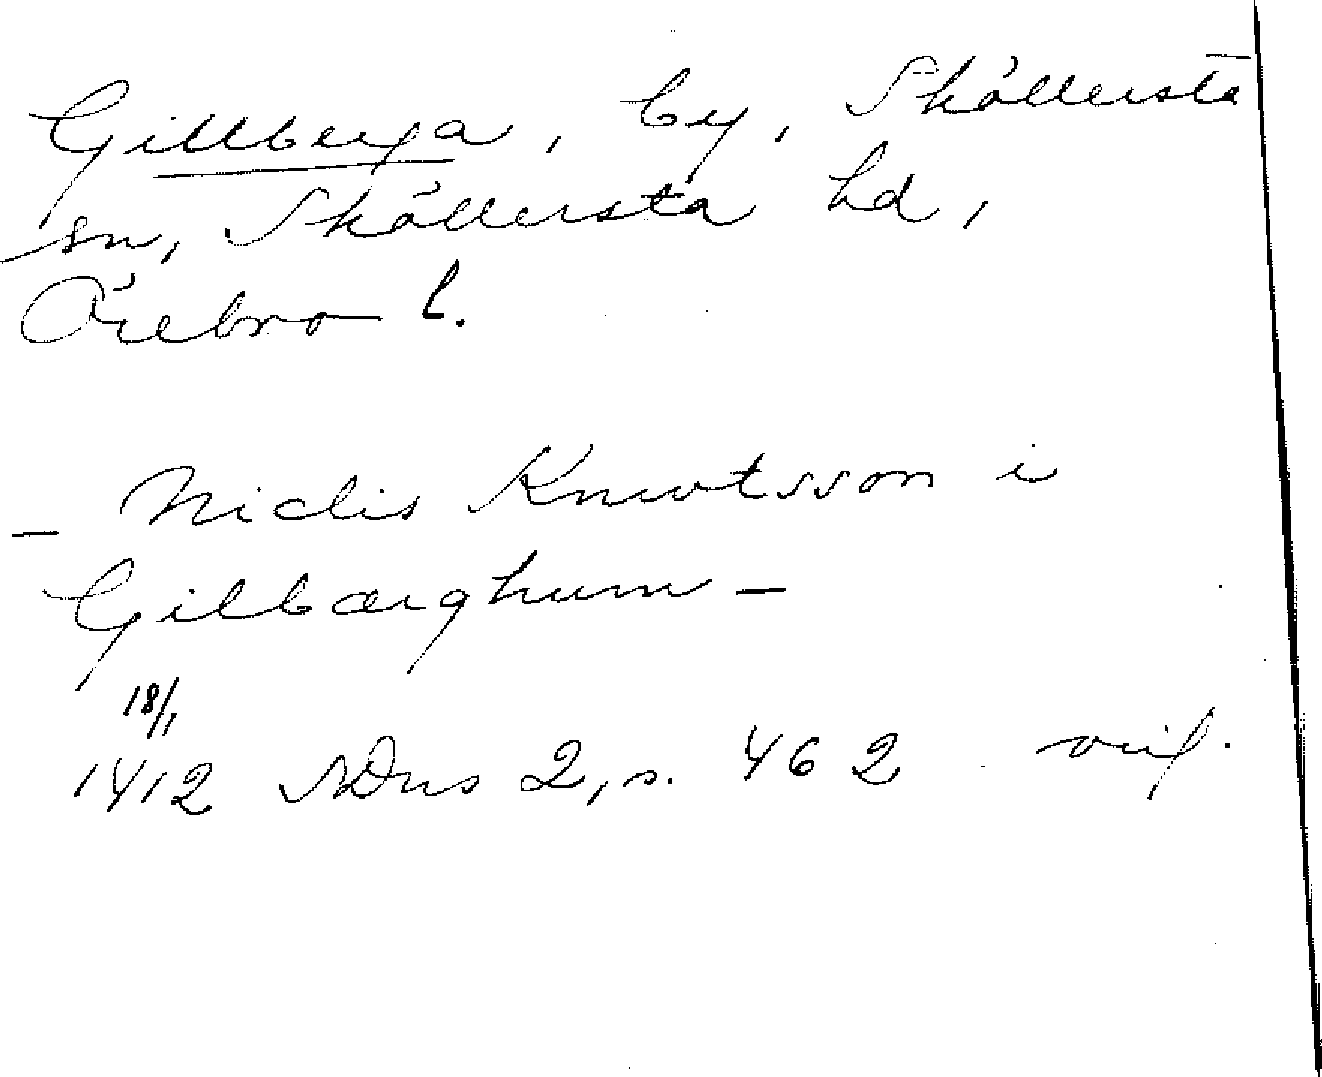 Gillberga, by, Sköllersta
sn, Sköllersta hd,
Örebro l.
- Niclis Knwtsson i
Gilbærghum -
18/1
1412 SDns 2, s. 462 orig.